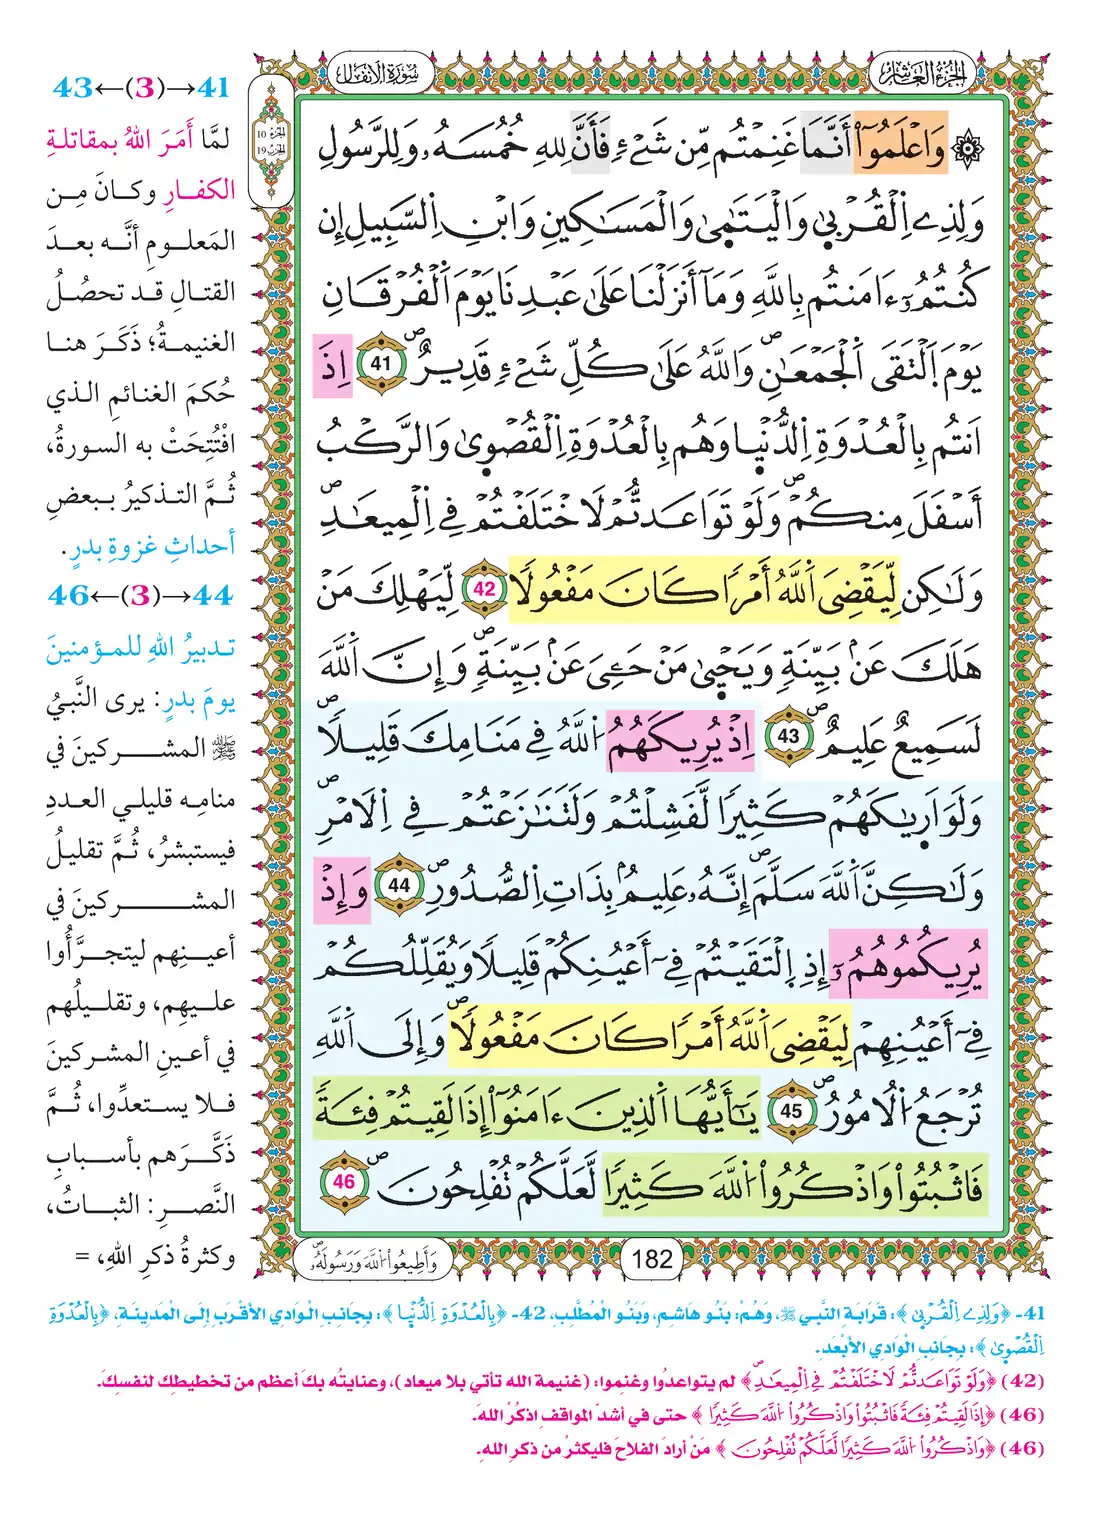 سُورَةُ الْاَنفَالِ
الجُزْءُ العَاشِرُ
الجزء 10
الحزب 19
۞ وَاعْلَمُوٓاْ أَنَّمَا غَنِمْتُم مِّن شَےْءٖ فَأَنَّ لِلهِ خُمُسَهُۥ وَلِلرَّسُولِ
وَلِذِے اِ۬لْقُرْب۪يٰ وَالْيَتَٰم۪يٰ وَالْمَسَٰكِينِ وَابْنِ اِ۬لسَّبِيلِ إِن
كُنتُمُۥٓ ءَامَنتُم بِاللَّهِ وَمَآ أَنزَلْنَا عَلَىٰ عَبْدِنَا يَوْمَ اَ۬لْفُرْقَانِ
يَوْمَ اَ۪لْتَقَى اَ۬لْجَمْعَٰنِۖ وَاللَّهُ عَلَىٰ كُلِّ شَےْءٖ قَدِيرٌۖ 41 اِذَ
اَنتُم بِالْعُدْوَةِ اِ۬لدُّنْي۪ا وَهُم بِالْعُدْوَةِ اِ۬لْقُصْو۪يٰ وَالرَّكْبُ
أَسْفَلَ مِنكُمْۖ وَلَوْ تَوَاعَدتُّمْ لَاخْتَلَفْتُمْ فِے اِ۬لْمِيعَٰدِۖ
وَلَٰكِن لِّيَقْضِىَ اَ۬للَّهُ أَمْرًا كَانَ مَفْعُولًا 42 لِّيَهْلِكَ مَنْ
هَلَكَ عَنۢ بَيِّنَةٖ وَيَحْي۪يٰ مَنْ حَيِىَ عَنۢ بَيِّنَةٖۖ وَإِنَّ اَ۬للَّهَ
لَسَمِيعٌ عَلِيمٌۖ 43 اِذْ يُرِيكَهُمُ اُ۬للَّهُ فِے مَنَامِكَ قَلِيلًاۖ
وَلَوَ اَر۪يٰكَهُمْ كَثِيرًا لَّفَشِلْتُمْ وَلَتَنَٰزَعْتُمْ فِے اِ۬لَامْرِۖ
وَلَٰكِنَّ اَ۬للَّهَ سَلَّمَۖ إِنَّهُۥ عَلِيمُۢ بِذَاتِ اِ۬لصُّدُورِۖ 44 وَإِذْ
يُرِيكُمُوهُمُۥٓ إِذِ اِ۪لْتَقَيْتُمْ فِےٓ أَعْيُنِكُمْ قَلِيلًا وَيُقَلِّلُكُمْ
فِےٓ أَعْيُنِهِمْ لِيَقْضِىَ اَ۬للَّهُ أَمْرًا كَانَ مَفْعُولًاۖ وَإِلَى اَ۬للَّهِ
تُرْجَعُ اُ۬لُامُورُۖ 45 يَٰٓأَيُّهَا اَ۬لذِينَ ءَامَنُوٓاْ إِذَا لَقِيتُمْ فِئَةً
فَاثْبُتُواْ وَاذْكُرُواْ اُ۬للَّهَ كَثِيرًا لَّعَلَّكُمْ تُفْلِحُونَۖ 46
182
وَأَطِيعُواْ اُ۬للَّهَ وَرَسُولَهُۥۖ
43←(3)→41
لمَّا أَمَرَ اللهُ بمقاتلةِ
الكفارِ وكانَ مِن
المَعلومِ أنَّه بعدَ
القتالِ قد تحصُلُ
الغنيمةُ؛ ذَكَرَ هنا
حُكمَ الغنائمِ الذي
افْتُتِحَتْ به السورةُ،
ثُمَّ التذكيرُ ببعضِ
أحداثِ غزوةِ بدرٍ.
46←(3)→44
تدبيرُ اللهِ للمؤمنينَ
يومَ بدرٍ: يرى النَّبيُ
ﷺ المشركينَ في
منامِه قليلي العددِ
فيستبشرُ، ثُمَّ تقليلُ
المشركينَ في
أعينِهم ليتجرَّأُوا
عليهِم، وتقليلُهم
في أعينِ المشركينَ
فلا يستعدِّوا، ثُمَّ
ذَكَّرَهم بأسبابِ
النَّصرِ: الثباتُ،
وكثرةُ ذكرِ اللهِ، =
41- ﴿وَلِذِے اِ۬لْقُرْب۪يٰ﴾: قَرَابَةِ النَّبيِ ﷺ، وَهُمْ: بَنُو هَاشِمٍ، وَبَنُو الْمُطَّلِبِ، 42- ﴿بِالْعُدْوَةِ اِ۬لدُّنْي۪ا﴾: بِجَانِبِ الْوَادِي الأَقْرَبِ إِلَى الْمَدِينَةِ، ﴿بِالْعُدْوَةِ
اِ۬لْقُصْو۪يٰ﴾: بِجَانِبِ الْوَادِي الأَبْعَدِ.
(42) ﴿وَلَوْ تَوَاعَدتُّمْ لَاخْتَلَفْتُمْ فِے اِ۬لْمِيعَٰدِۖ﴾ لم يتواعدُوا وغنِموا: (غنيمة الله تأتي بلا ميعاد)، وعنايتُه بكَ أعظم من تخطيطِك لنفسِكَ.
(46) ﴿إِذَا لَقِيتُمْ فِئَةً فَاثْبُتُواْ وَاذْكُرُواْ اُ۬للَّهَ كَثِيرًا﴾ حتى في أشدّ المواقف اذكُرْ اللهَ.
(46) ﴿وَاذْكُرُواْ اُ۬للَّهَ كَثِيرًا لَّعَلَّكُمْ تُفْلِحُونَ﴾ مَنْ أرادَ الفلاحَ فليكثرْ من ذكرِ اللهِ.